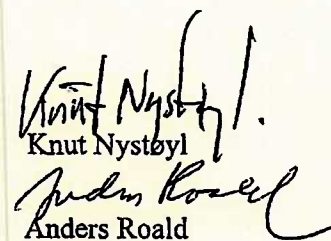 Knut Nystøyl.
Knut Nystøyl
Anders Roald
Anders Roald